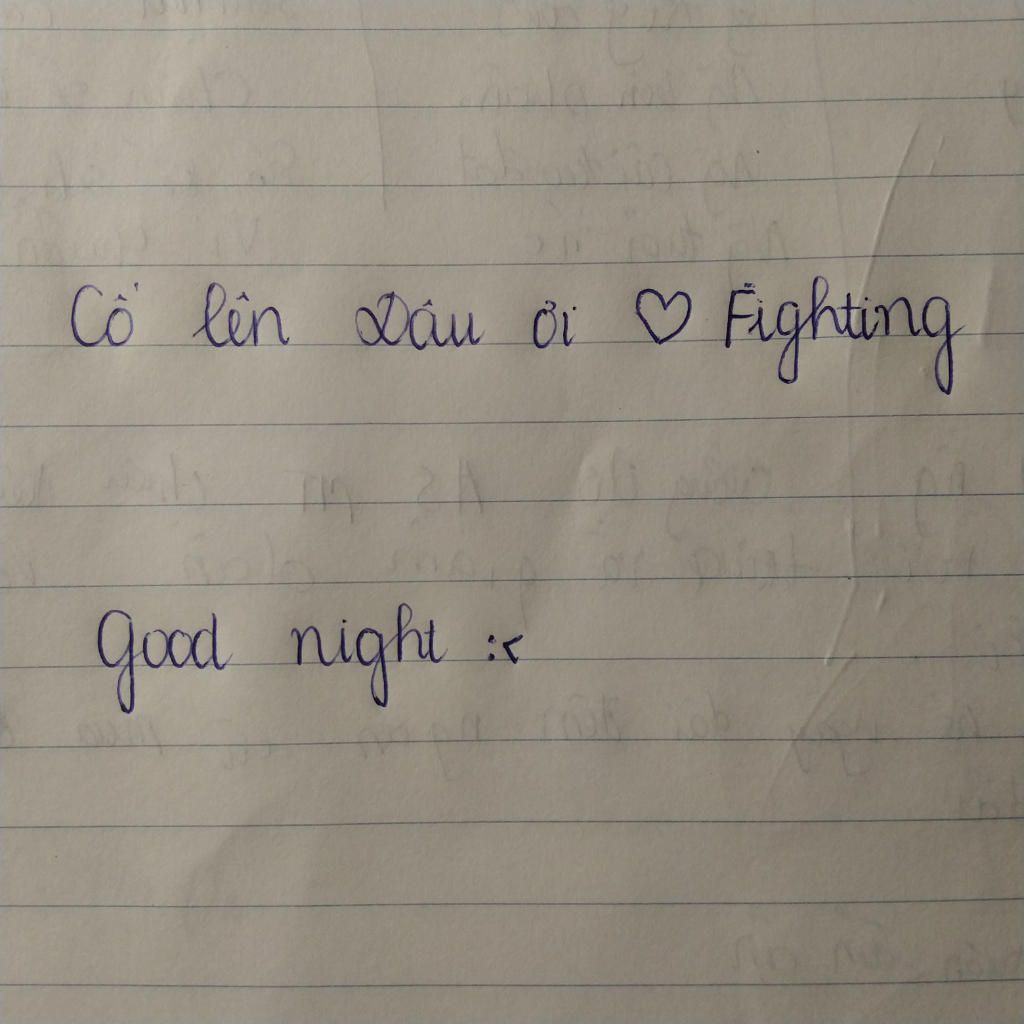 Cố lên Dâu ơi ♡ Fighting
Good night :<